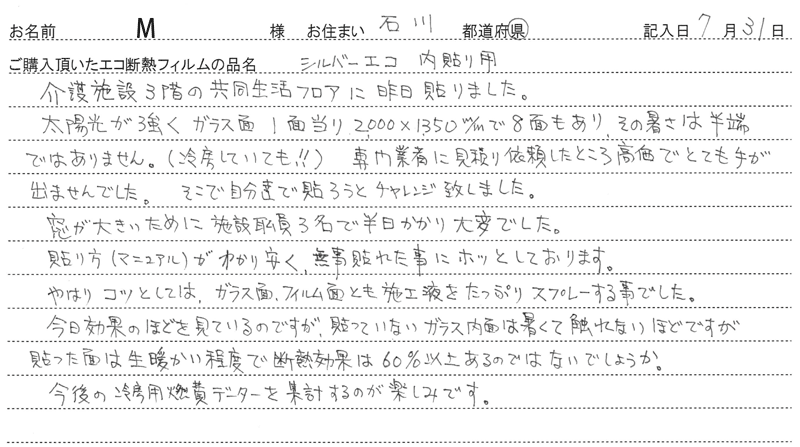 お名前 M 様 お住まい 石川 都道府県 記入日 7月31日
ご購入頂いたエコ断熱フィルムの品名 シルバーエコ 内貼り用
介護施設3階の共同生活フロアに昨日貼りました。
太陽光が強くガラス面1面当り2,000×1350m/mで8面もあり、その暑さは半端
ではありません。(冷房していても!!) 専門業者に見積り依頼したところ高価でとても手が
出ませんでした。 そこで自分達で貼ろうとチャレンジ致しました。
窓が大きいために施設職員3名で半日かかり大変でした。
貼り方(マニュアル)がわかり安く、無事貼れた事にホッとしております。
やはりコツとしては、ガラス面、フィルム面とも施工液をたっぷりスプレーする事でした。
今日効果のほどを見ているのですが、貼っていないガラス内面は暑くて触れないほどですが
貼った面は生暖かい程度で断熱効果は60%以上あるのではないでしょうか。
今後の冷房用燃費データーを集計するのが楽しみです。